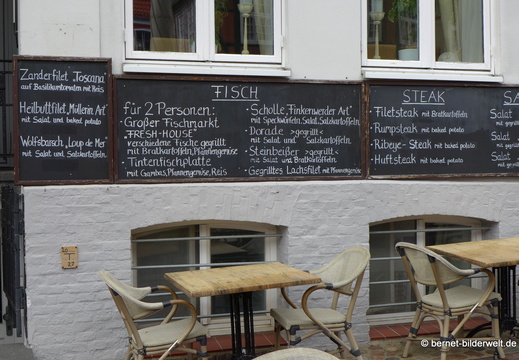 Zanderfilet „Toscana"
auf Basilikumtomaten mit Reis
Heilbuttfilet „Müllerin Art"
mit Salat und baked potato
Wolfsbarsch „Loup de Mer"
mit Salat und Salzkartoffeln
FISCH
für 2 Personen:
• Großer Fischmarkt
„FRESH-HOUSE"
verschiedene Fische gegrillt
mit Bratkartoffeln, Pfannengemüse
• Tintenfischplatte
mit Gambas, Pfannengemüse, Reis
• Scholle „Finkenwerder Art"
mit Speckwürfeln, Salat, Salzkartoffeln
• Dorade >gegrillt<
mit Salat und Salzkartoffeln
• Steinbeißer >gegrillt<
mit Salat und Bratkartoffeln
• Gegrilltes Lachsfilet mit Pfannengemüse
STEAK
• Filetsteak mit Bratkartoffeln
• Rumpsteak mit baked potato
• Ribeye-Steak mit baked potato
• Huftsteak mit baked potato
SA
Salat
mit gegrill
Salat
mit gegrill
Salat
mit gegrill
© bernet-bilderwelt.de